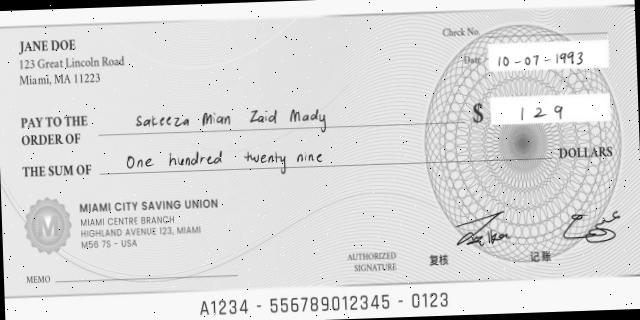 JANE DOE
123 Great Lincoln Road
Miami, MA 11223
Check No.
Date 10-07-1993
PAY TO THE
ORDER OF Sakeeza Mian Zaid Mady
$ 129
THE SUM OF One hundred twenty nine DOLLARS
M
MIAMI CITY SAVING UNION
MIAMI CENTRE BRANCH
HIGHLAND AVENUE 123, MIAMI
M56 7S - USA
AUTHORIZED
SIGNATURE
复核 记账
MEMO
A1234 - 556789012345 - 0123